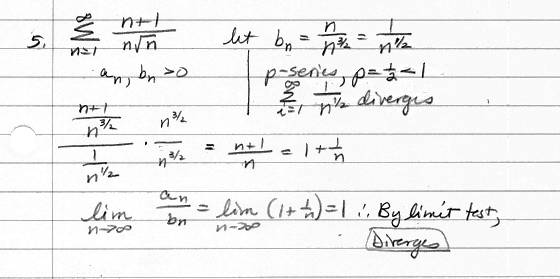 5. ∞ Σ n=1 (n+1)/(n√n) let b_n = n/n^(3/2) = 1/n^(1/2)
a_n, b_n > 0 | p-series, p = 1/2 < 1
∞ Σ i=1 1/n^(1/2) diverges
((n+1)/n^(3/2))/(1/n^(1/2)) · n^(3/2)/n^(3/2) = (n+1)/n = 1 + 1/n
lim n→∞ a_n/b_n = lim n→∞ (1 + 1/n) = 1 ∴ By limit test,
Diverges